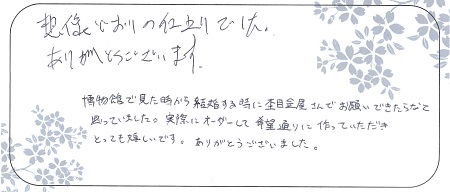 想像どおりの仕上りでした。
ありがとうございます。
博物館で見た時から結婚する時に杢目金屋さんでお願いできたらなと
思っていました。実際にオーダーして希望通りに作っていただき
とっても嬉しいです。ありがとうございました。